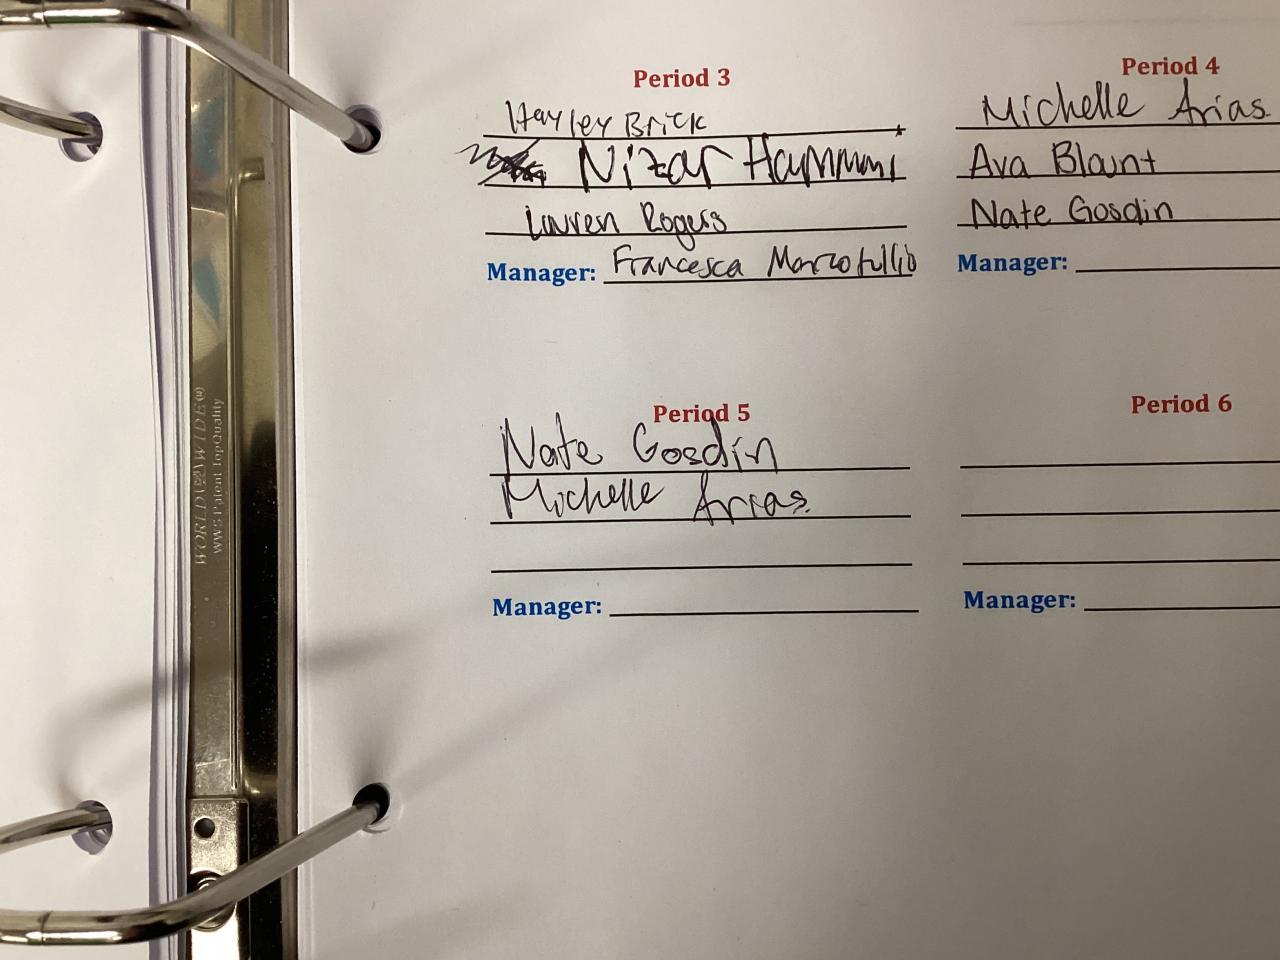 Period 3
Hayley Brick
Nizar Hammami
Lauren Rogers
Manager: Francesca Marcotullio
Period 4
Michelle Arias
Ava Blount
Nate Gosdin
Manager:
Period 5
Nate Gosdin
Michelle Arias
Manager:
Period 6
Manager:
WORLD WIDE
WWS Patent TopQuality